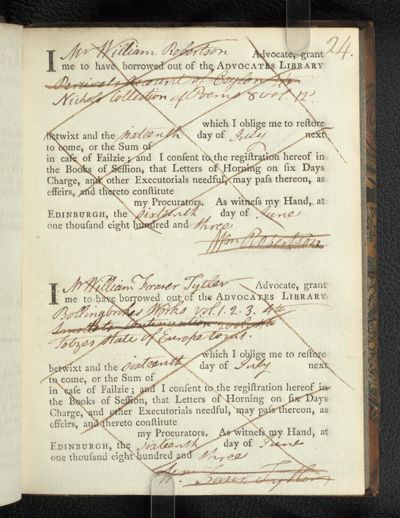 24.
I Mr William Robertson Advocate, grant
me to have borrowed out of the ADVOCATES LIBRARY
Percival's Account of Ceylon 4to
Nichols Collection of Poems 8 vol. 12o
which I oblige me to reſtore
betwixt and the sixteenth day of July next
to come, or the Sum of
in caſe of Failzie; and I conſent to the regiſtration hereof in
the Books of Seſſion, that Letters of Horning on ſix Days
Charge, and other Executorials needful, may paſs thereon, as
effeirs, and thereto conſtitute
my Procurators. As witneſs my Hand, at
EDINBURGH, the sixteenth day of June
one thouſand eight hundred and three
Wm Robertson
I Mr William Fraser Tytler Advocate, grant
me to have borrowed out of the ADVOCATES LIBRARY
Bolingbrokes Works vol. 1. 2. 3. 4to
Smollets Continuation
State of Europe
which I oblige me to reſtore
betwixt and the sixteenth day of July next
to come, or the Sum of
in caſe of Failzie; and I conſent to the regiſtration hereof in
the Books of Seſſion, that Letters of Horning on ſix Days
Charge, and other Executorials needful, may paſs thereon, as
effeirs, and thereto conſtitute
my Procurators. As witneſs my Hand, at
EDINBURGH, the sixteenth day of June
one thouſand eight hundred and three
Wm Fraser Tytler